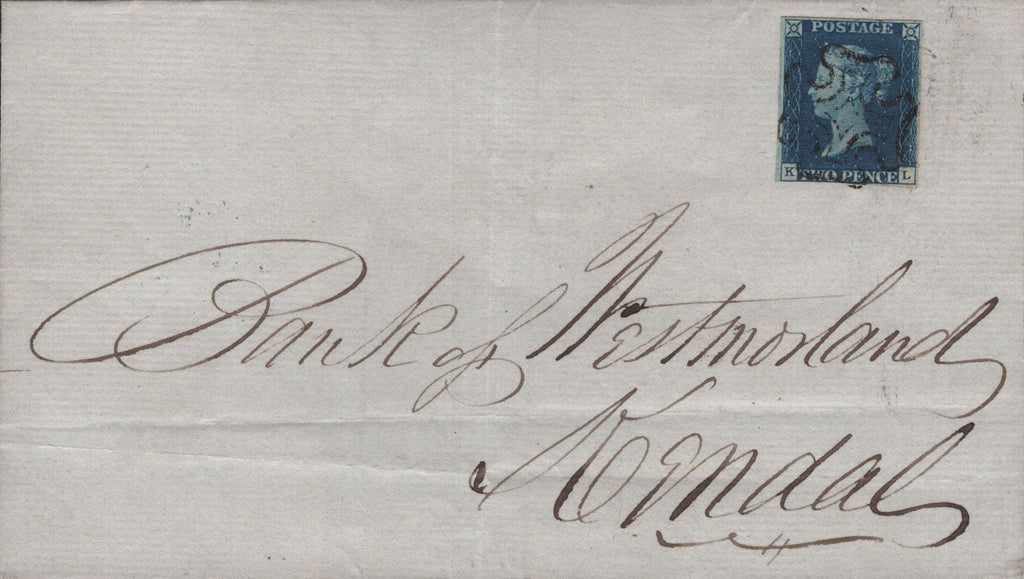 POSTAGE
K TWO PENCE L
Bank of Westmorland
Kendal